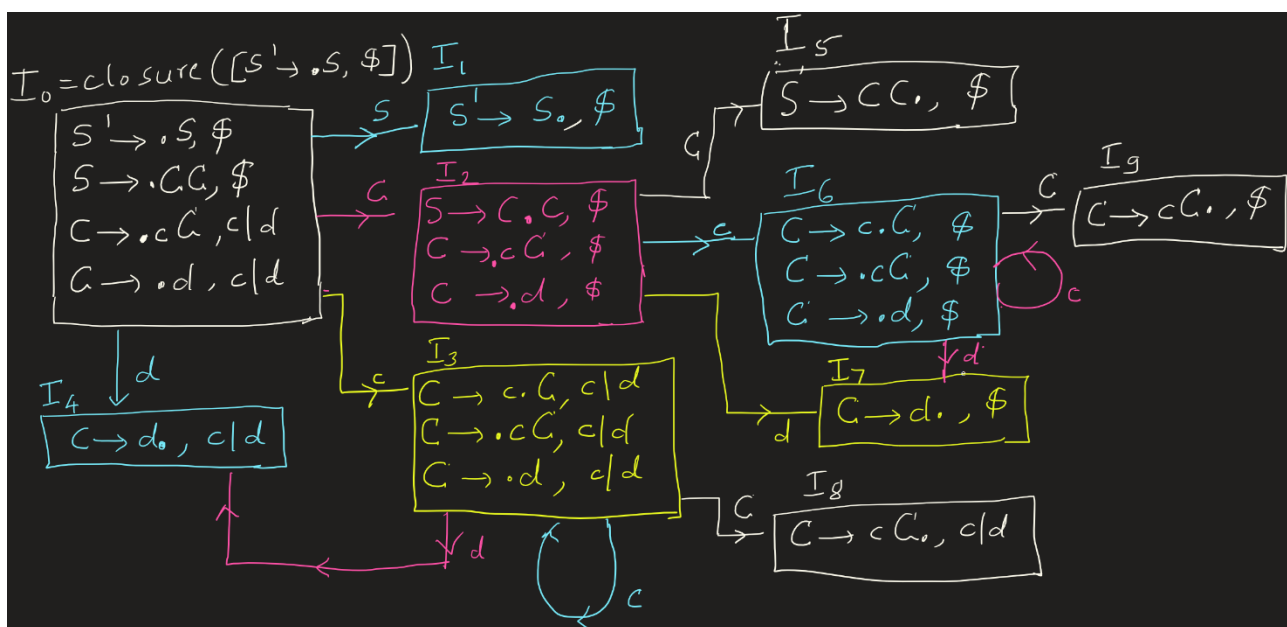 I₀ = closure([S' → .S, $])
S' → .S, $
S → .CC, $
C → .cC, c|d
C → .d, c|d
S
I₁
S' → S., $
C
I₂
S → C.C, $
C → .cC, $
C → .d, $
C
I₅
S → CC., $
c
I₆
C → c.C, $
C → .cC, $
C → .d, $
C
I₉
C → cC., $
c
d
d
I₇
C → d., $
c
I₃
C → c.C, c|d
C → .cC, c|d
C → .d, c|d
d
I₄
C → d., c|d
d
c
C
I₈
C → cC., c|d